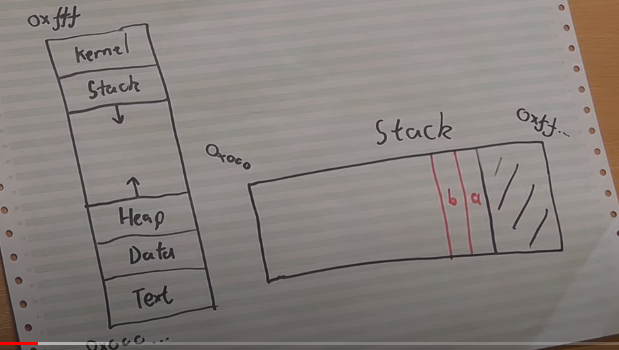 0xfff
Kernel
Stack
Heap
Data
Text
0x000...
Stack
0x000
0xff...
b
a